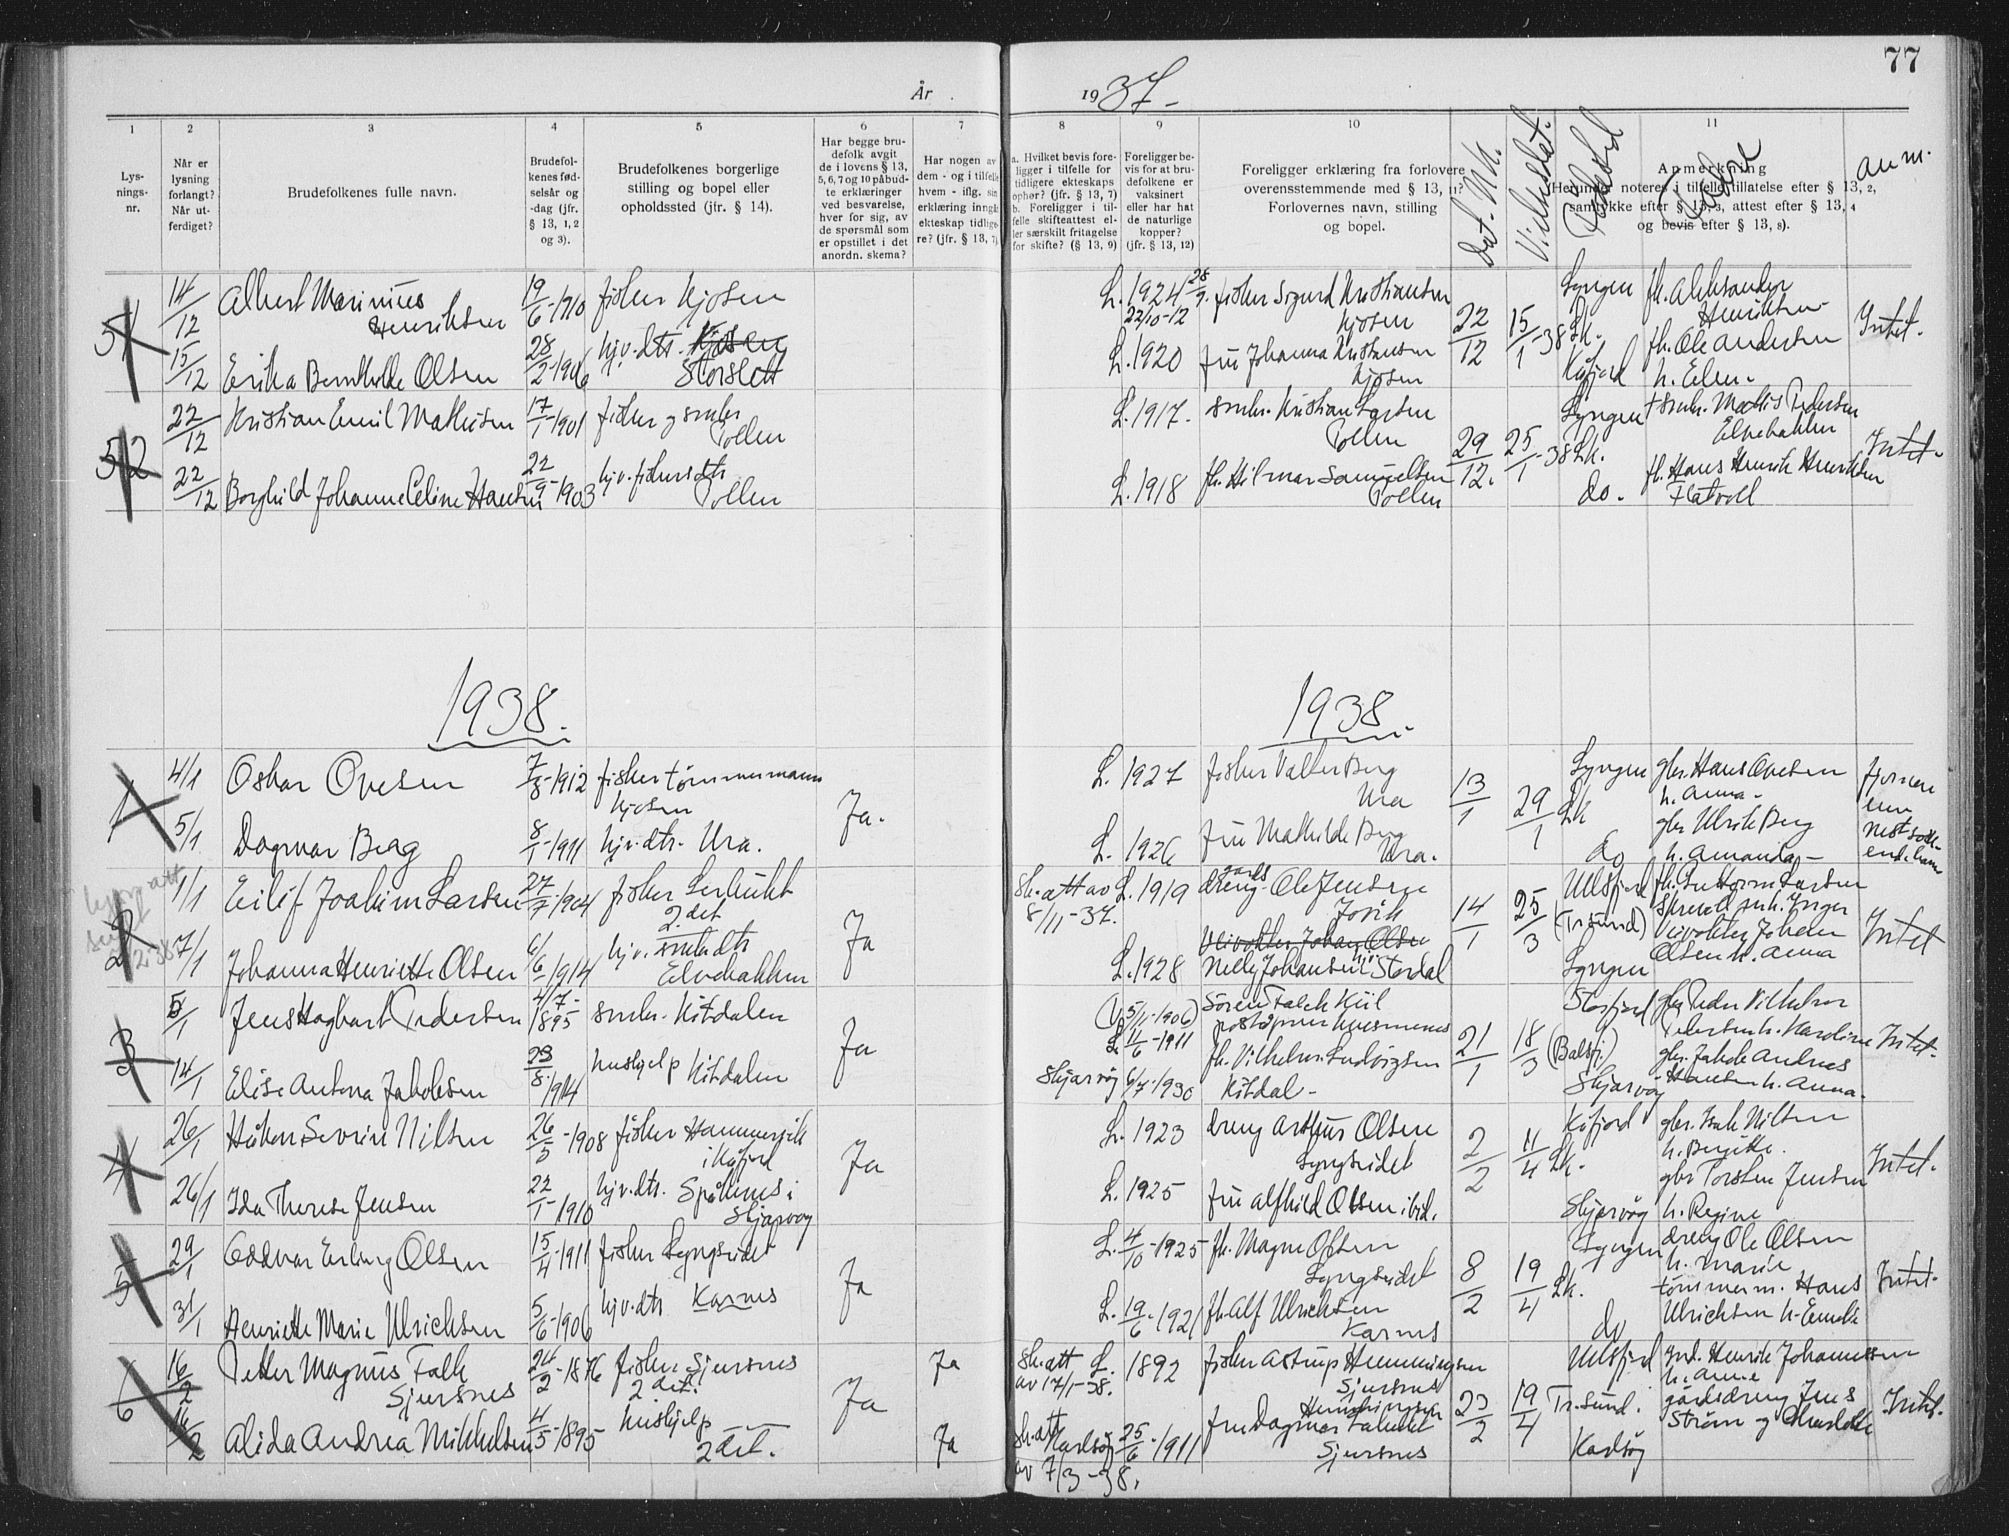 77
År
1937-
1
Lys-
nings-
nr.
2
Når er
lysning
forlangt?
Når ut-
ferdiget?
3
Brudefolkenes fulle navn.
4
Brudefol-
kenes fød-
selsår og
-dag (jfr.
§ 13, 1, 2
og 3).
5
Brudefolkenes borgerlige
stilling og bopel eller
opholdssted (jfr. § 14).
6
Har begge bru-
defolk avgit
de i lovens § 13,
5, 6, 7 og 10 påbud-
te erklæringer
ved besvarelse,
hver for sig, av
de spørsmål som
er opstillet i det
anordn. skema?
7
Har nogen av
dem - og i tilfelle
hvem - iflg. sin
erklæring inngått
ekteskap tidlige-
re? (jfr. § 13, 7)
8
a. Hvilket bevis fore-
ligger i tilfelle for
tidligere ekteskaps
ophør? (jfr. § 13, 7)
b. Foreligger i til-
felle skifteattest el-
ler særskilt fritagelse
for skifte? (§ 13, 9)
9
Foreligger be-
vis for at bru-
defolkene er
vaksinert
eller har hat
de naturlige
kopper?
(jfr. § 13, 12)
10
Foreligger erklæring fra forlovere
overensstemmende med § 13, 11?
Forlovernes navn, stilling
og bopel.
Dat. M.k.
Vielsesdat.
11
Anmerkning
Herunder noteres i tilfelle tillatelse efter § 13, 2,
samtykke efter § 13, 3, attest efter § 13, 4
og bevis efter § 13, 8).
anm.
51
14/12
Albert Marinius
Henriksen
19/6-1910
fisker Kjosen
L. 1924
22/10-12
fisker Sigurd Kristiansen
Kjosen
22/12
15/1-38
Lk.
Lyngen
fh. Aleksander
Henriksen
Intet.
15/12
Erika Berntholde Olsen
28/2-1906
hjv. dtr. Kjosen
Storslett
L. 1920
fru Johanna Kristiansen
Kjosen
Kåfjord
fh. Ole Andersen
h. Elen.
52
22/12
Kristian Emil Mathisen
17/1-1901
fisker og småbr.
Pollen
L. 1917.
småbr. Kristian Larsen
Pollen
29/12.
25/1-38
Lk.
Lyngen
småbr. Mathis Pedersen
Elvebakken
Intet.
22/12
Borghild Johanne Celine Hansen
22/9-1903
hjv. fiskersdtr
Pollen
L. 1918
fh. Hilmar Samuelsen
Pollen
do.
fh. Hans Henrik Henriksen
Flatvoll
1938.
1938.
1
4/1
Oskar Ovesen
7/8-1912
fisker tømmermann
Kjosen
Ja.
L. 1927
fisker Valter Berg
Ura
13/1
29/1
Lk
Lyngen
gbr. Hans Ovesen
h. Anna.
5/1
Dagmar Berg
8/1-1911
hjv. dtr. Ura.
L. 1926
fru Mathilde Berg
Ura.
do
gbr Ulrik Berg
h. Amanda
2
1/1
Eilif Joakim Larsen
27/7-1904
fisker
2. det
Ja
sk. att av
8/11-37.
L. 1919
dreng Ole Jensen
Jovik
14/1
25/3
(Tr.sund)
Ullsfjord
Intet
7/1
Johanna Henriette Olsen
6/6 1914
hjv. småbr. dtr
Elvebakken
L. 1928
Nelly Johansen Stordal
Lyngen
Olsen h. Anna
3
5/1
Jens Hagbart Pedersen
4/7-1895
småbr. Kitdalen
Ja
(5/11-1906)
6-1911
Søren Falck Kiil
21/1
18/3
(Balsfj.)
Storfjord
gbr Peder Vilhelm
Pedersen h. Karoline
Intet.
14/1
Elise Antona Jakobsen
23/8 1914
hushjelp Kitdalen
Skjærvøy 6/7-1930
fh. Vilhelm Ludvigsen
Kitdal-
Skjærvøy
gbr. Jakob Andreas
Hansen h. Anna.
4
26/1
Håkon Severin Nilsen
26/5-1908
fisker Hammervik
i Kåfjord
Ja
L. 1923
dreng Arthur Olsen
Lyngseidet
2/2
11/4
Lk.
Kåfjord
gbr. Isak Nilsen
h. Birgitte.
Intet.
26/1
Ida Therese Jensen
22/1-1910
hjv. dtr. Spåknes i
Skjærvøy
L. 1925
fru Alfhild Olsen ibid.
Skjærvøy
gbr Torsten Jensen
h. Regine
5
29/1
Oddvar Erling Olsen
15/4-1911
fisker Lyngseidet
Ja
L. 4/10-1925
fh. Magne Olsen
Lyngseidet
8/2
19/4
Lk.
Lyngen
dreng Ole Olsen
h. Marie
Intet.
31/1
Henriette Marie Ulrichsen
5/6-1906
hjv. dtr. Karnes
L. 19/6-1921
fh. Alf Ulrichsen
Karnes
do
tømmerm. Hans
Ulrichsen h. Emelie
6
16/2
Petter Magnus Falk
Sjursnes
24/2-1876
fisker Sjursnes
2 det.
Ja
Ja
sk. att
av 17/1-38.
L. 1892
fisker Astrup Hemmingsen
Sjursnes
23/2
19/4
Tr. sund.
Ullsfjord
Henrik Johannessen
h. Anne
Intet.
16/2
Alida Andrea Mikkelsen
4/5-1895
hushjelp
2 det.
Ja
sk. att
Karlsøy
av 7/3-38.
25/6-1911
Hemmingsen
fru Dagmar
Sjursnes
Karlsøy
gårdsdreng Jens
Strøm og